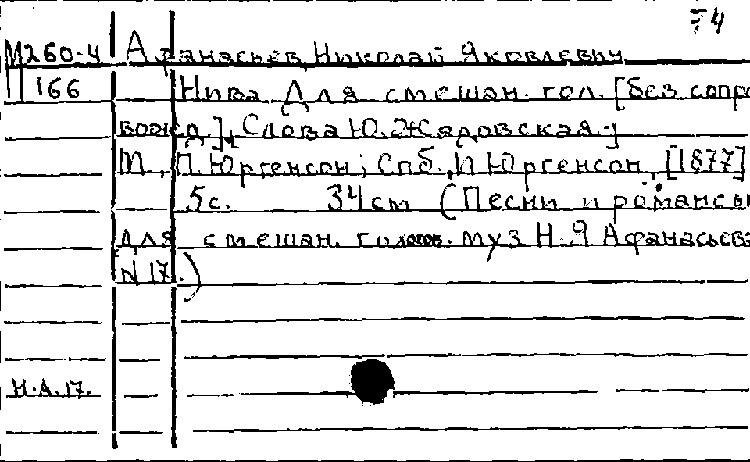 74
М260-4 Афанасьев, Николай Яковлевич
166 Нива. Для смешан. гол. [без сопро
вожд]. [Слова Ю. Жадовская.]
М., П. Юргенсон; Спб., И. Юргенсон, [1877]
5с. 34см (Песни и романсы
для смешан. голосов. муз Н.Я Афанасьева
N 17.)
Н.А.17.